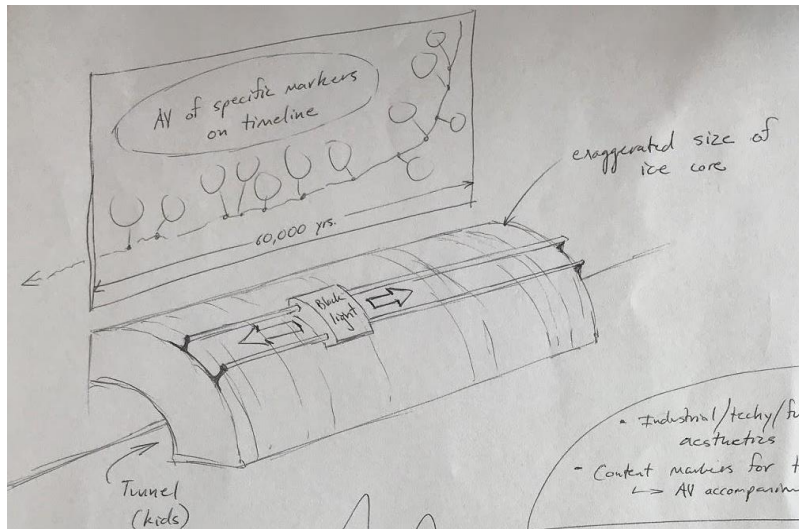 AV of specific markers
on timeline
60,000 yrs.
exaggerated size of
ice core
Black
light
Tunnel
(kids)
• Industrial/techy/
aesthetics
- Content markers for
↳ AV